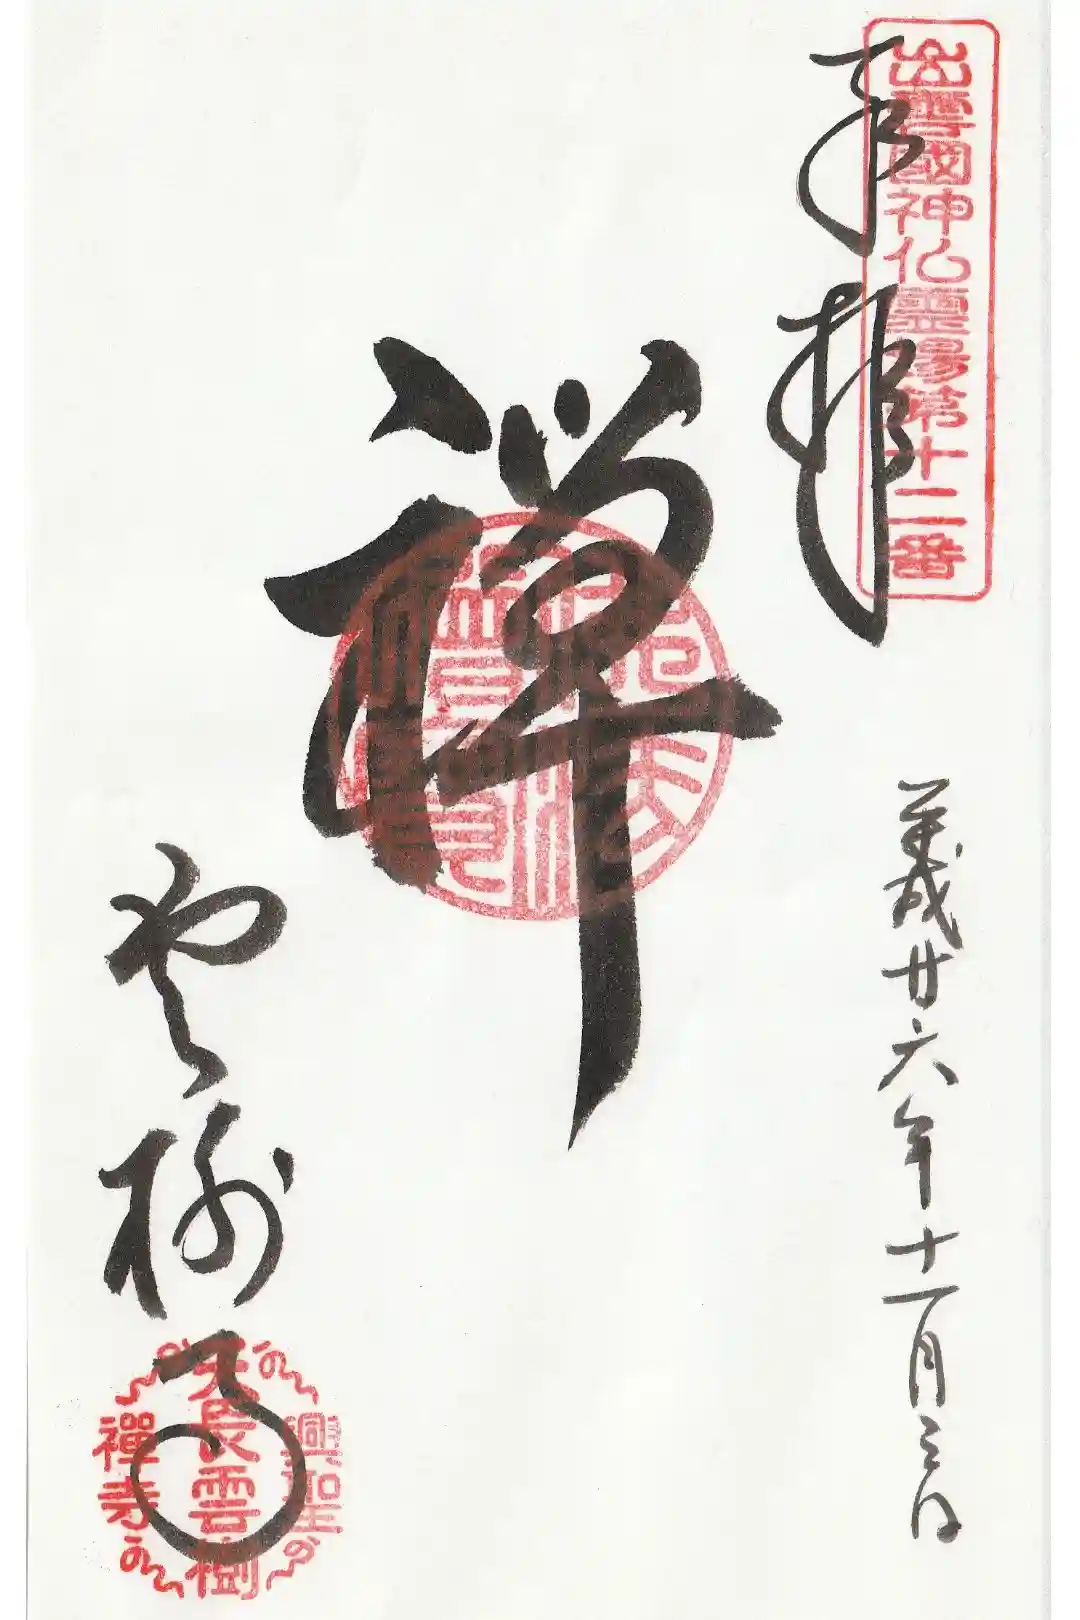 出雲國神仏霊場第十二番
奉拝
平成廿六年十一月三日
禅
雲樹寺
天長雲樹
興聖
禪寺